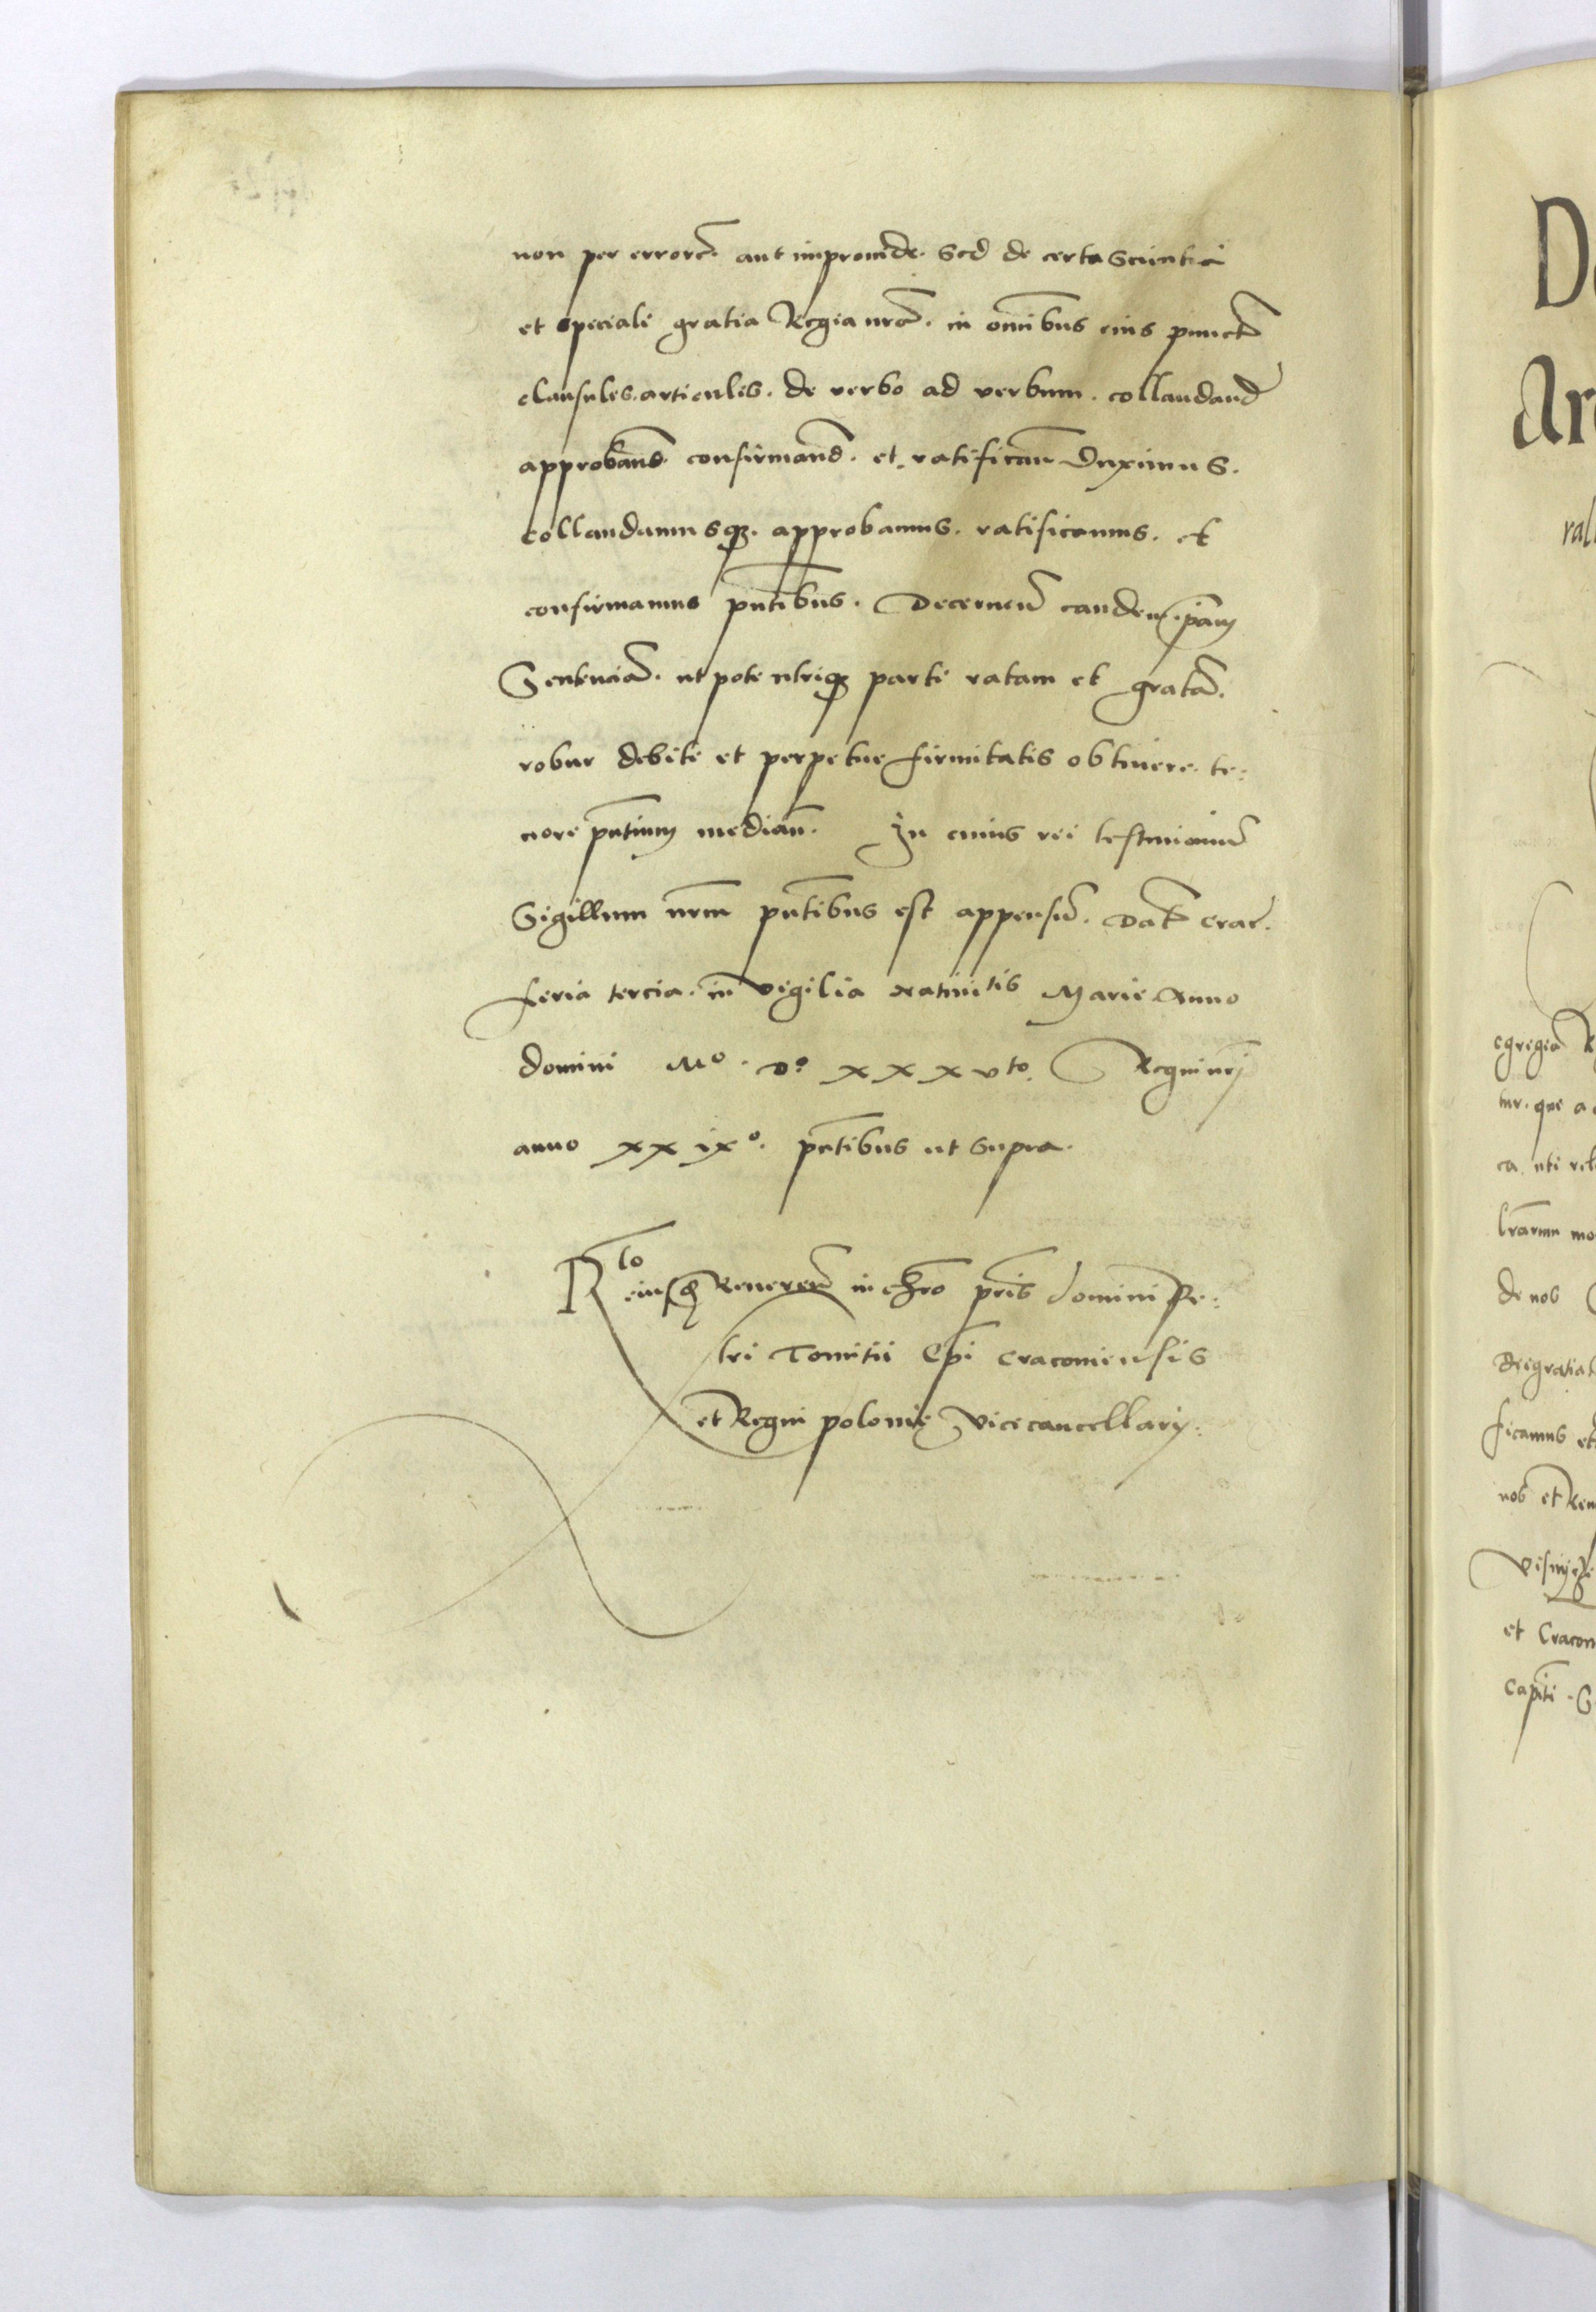 non per errore. aut improuide. Sed de certa Scientia
et speciali gratia Regia nra. in omibus eius punct
clausules. articules. de verbo ad verbum. collaudand
approband. confirmand. et. ratifican Duximus.
collaudamusq3. approbamus. ratificamus. et
confirmamus pntibus. Decernen eandem ipam
Sentencia. ut pote utriq3 parti ratam et grata.
robur debite et perpetue firmitatis obtinere. te:
nore pntium median. In cuius rei testimoniu
Sigillum nrm pntibus est appensu. Dat crac.
feria tercia. in vigilia natiuitis Marie Anno
domini Mo. Do xxxvto. Regni nri
anno xxixo. pntibus ut supra.
Rto eiusd Reueren in chro pris domini Pe:
tri Tomitii Epi Cracouiensis
et Regni polonie Vicecancellarij.
D
Ar
ral
egregia
tur. que a
ca. uti
lrarum mo
de nos
Regratia
ficamus et
nos et Ren
et Cracou